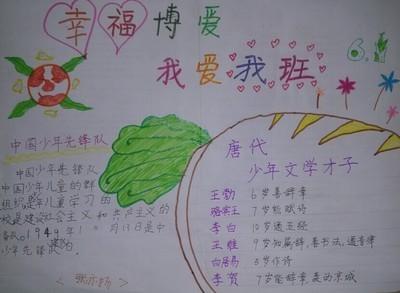 幸福博爱
我爱我班
6.1
中国少年先锋队
中国少年先锋队
中国少年儿童的群
组织是年儿童学习的
校是建设社会主义和共产主义的
备队。1949年10月13日是中
少年先锋
唐代
少年文学才子
王勃 6岁善辞章
骆宾王 7岁能赋诗
李白 10岁通五经
王维 9岁知属辞,善书法,通音律
白居易 5岁作诗
李贺 7岁能辞章,轰动京城